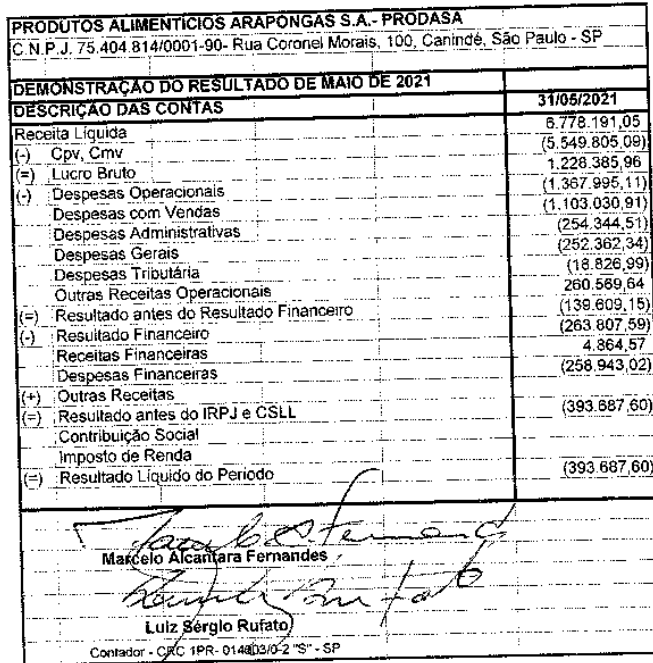 PRODUTOS ALIMENTÍCIOS ARAPONGAS S.A.- PRODASA
C.N.P.J. 75.404.814/0001-90- Rua Coronel Morais, 100, Canindé, São Paulo - SP
DEMONSTRAÇÃO DO RESULTADO DE MAIO DE 2021
DESCRIÇÃO DAS CONTAS 31/05/2021
Receita Líquida 6.778.191,05
(-) Cpv, Cmv (5.549.805,09)
(=) Lucro Bruto 1.228.385,96
(-) Despesas Operacionais (1.367.995,11)
Despesas com Vendas (1.103.030,91)
Despesas Administrativas (254.344,51)
Despesas Gerais (252.362,34)
Despesas Tributária (18.826,99)
Outras Receitas Operacionais 260.569,64
(=) Resultado antes do Resultado Financeiro (139.609,15)
(-) Resultado Financeiro (263.807,59)
Receitas Financeiras 4.864,57
Despesas Financeiras (258.943,02)
(+) Outras Receitas
(=) Resultado antes do IRPJ e CSLL (393.687,60)
Contribuição Social
Imposto de Renda
(=) Resultado Líquido do Período (393.687,60)
Marcelo Alcantara Fernandes
Luiz Sérgio Rufato
Contador - CRC 1PR- "S" - SP